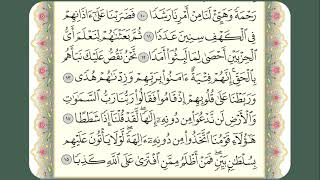 رَحْمَةً وَهَيِّئْ لَنَا مِنْ أَمْرِنَا رَشَدًا ١٠ فَضَرَبْنَا عَلَىٰٓ ءَاذَانِهِمْ
فِي ٱلْكَهْفِ سِنِينَ عَدَدًا ١١ ثُمَّ بَعَثْنَٰهُمْ لِنَعْلَمَ أَيُّ
ٱلْحِزْبَيْنِ أَحْصَىٰ لِمَا لَبِثُوٓا۟ أَمَدًا ١٢ نَّحْنُ نَقُصُّ عَلَيْكَ نَبَأَهُم
بِٱلْحَقِّ إِنَّهُمْ فِتْيَةٌ ءَامَنُوا۟ بِرَبِّهِمْ وَزِدْنَٰهُمْ هُدًى ١٣
وَرَبَطْنَا عَلَىٰ قُلُوبِهِمْ إِذْ قَامُوا۟ فَقَالُوا۟ رَبُّنَا رَبُّ ٱلسَّمَٰوَٰتِ
وَٱلْأَرْضِ لَن نَّدْعُوَا۟ مِن دُونِهِۦٓ إِلَٰهًا لَّقَدْ قُلْنَآ إِذًا شَطَطًا ١٤
هَٰٓؤُلَآءِ قَوْمُنَا ٱتَّخَذُوا۟ مِن دُونِهِۦٓ ءَالِهَةً لَّوْلَا يَأْتُونَ عَلَيْهِم
بِسُلْطَٰنٍۭ بَيِّنٍ فَمَنْ أَظْلَمُ مِمَّنِ ٱفْتَرَىٰ عَلَى ٱللَّهِ كَذِبًا ١٥